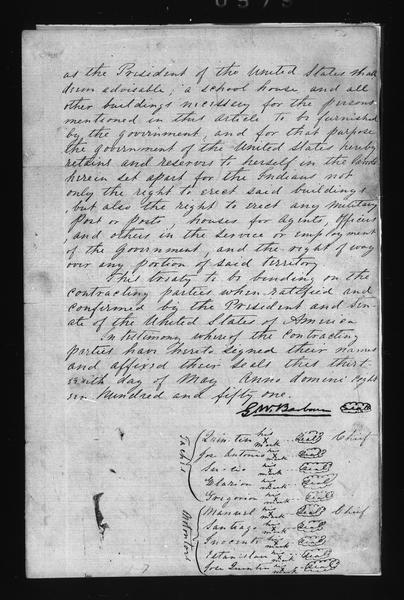 as the President of the United States shall
deem advisable; a school house, and all
other buildings necessary for the persons
mentioned in this article to be furnished
by the government, and for that purpose
the government of the United States hereby
retains and reserves to herself in the lands
herein set apart for the Indians not
only the right to erect said buildings
, but also the right to erect any military
Post or posts, houses for Agents, Officers
, and others in the service or employment
of the Government, and the right of way
over any portion of said Territory
This treaty to be binding on the
contracting parties when ratified and
confirmed by the President and Sen-
ate of the United States of America
In testimony where of the Contracting
parties have hereto signed their names
and affixed their Seals this thirt-
eenth day of May Anno domini Eight
een hundred and fifty one.
G.W. Barbour Seal
Quintin his mark Seal Chief
Joe Antonio his mark Seal
his mark Seal
Elarion his mark Seal
Gregorio his mark Seal
Manuel his mark Seal Chief
Santiago his mark Seal
Inocente his mark Seal
Estanislau his mark Seal
Joe Quintin his mark Seal